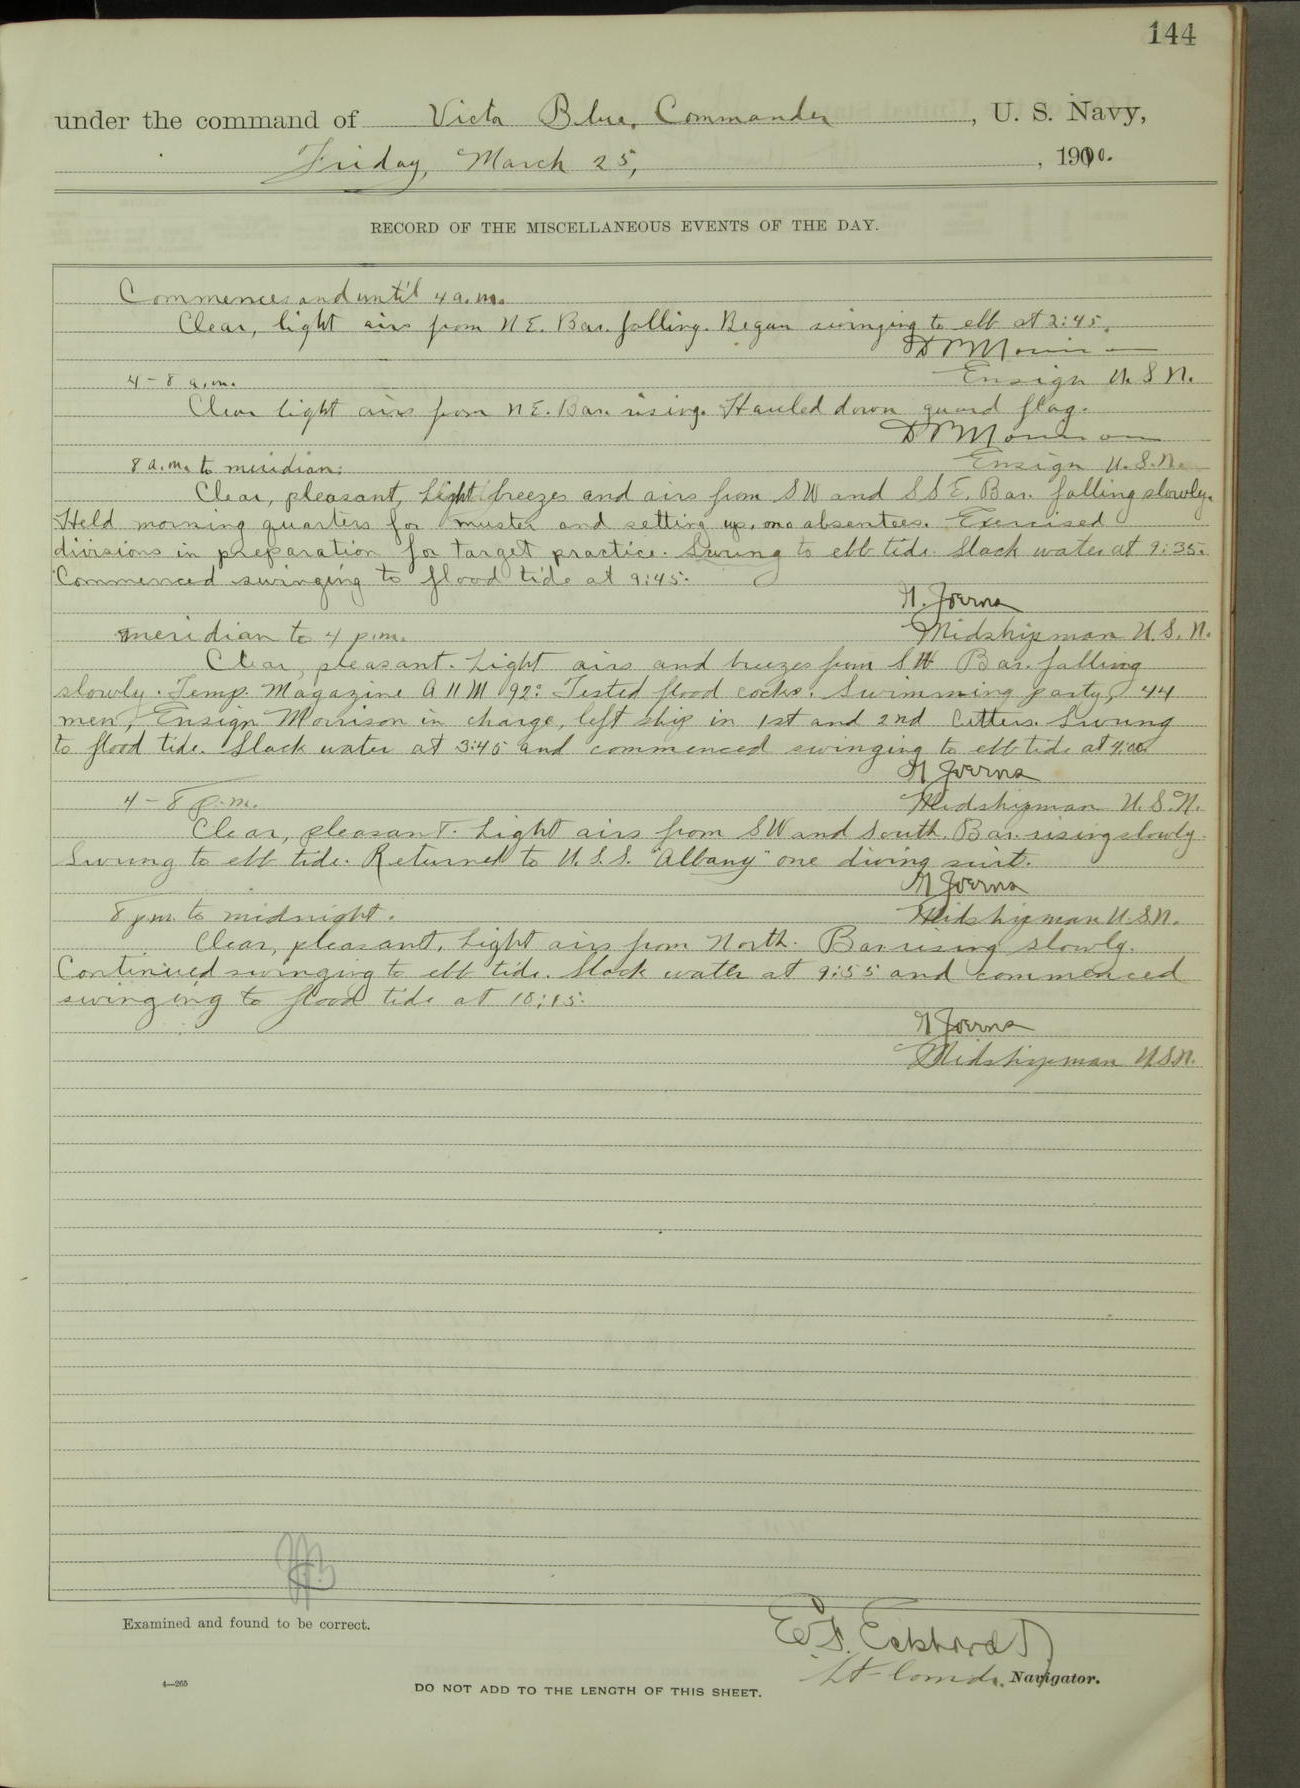 144
under the command of Victor Blue, Commander, U. S. Navy,
Friday, March 25, , 1910.
RECORD OF THE MISCELLANEOUS EVENTS OF THE DAY.
Commences and until 4 a.m.
Clear, light airs from N E. Bar. falling. Began swinging to ebb at 2:45.
Morrison
4 - 8 a.m.
Ensign U. S. N.
Clear light airs from N E. Bar. rising. Hauled down guard flag.
Morrison
8 a.m. to meridian:
Ensign U. S. N.
Clear, pleasant, Light breezes and airs from S W and S S E. Bar. falling slowly.
Held morning quarters for muster and setting up, no absentees. Exercised
divisions in preparation for target practice. Swung to ebb tide. Slack water at 9:35.
Commenced swinging to flood tide at 9:45.
N. Joerns
meridian to 4 p.m.
Midshipman U. S. N.
Clear, pleasant. Light airs and breezes from S W Bar. falling
slowly. Temp. Magazine A 11 M 92° Tested flood cocks. Swimming party, 44
men, Ensign Morrison in charge, left ship in 1st and 2nd Cutters. Swung
to flood tide. Slack water at 3:45 and commenced swinging to ebb tide at 4:00
Joerns
4 - 8 p.m.
Midshipman U. S. N.
Clear, pleasant. Light airs from S W and South. Bar. rising slowly.
Swung to ebb tide. Returned to U. S. S. "Albany" one diving suit.
Joerns
8 p.m. to midnight.
Midshipman U. S. N.
Clear, pleasant, Light airs from North. Bar rising slowly.
Continued swinging to ebb tide. Slack water at 9:55 and commenced
swinging to flood tide at 10:15.
Joerns
Midshipman U. S. N.
Examined and found to be correct.
Eckhardt
Lt-Comdr. Navigator.
4—265
DO NOT ADD TO THE LENGTH OF THIS SHEET.